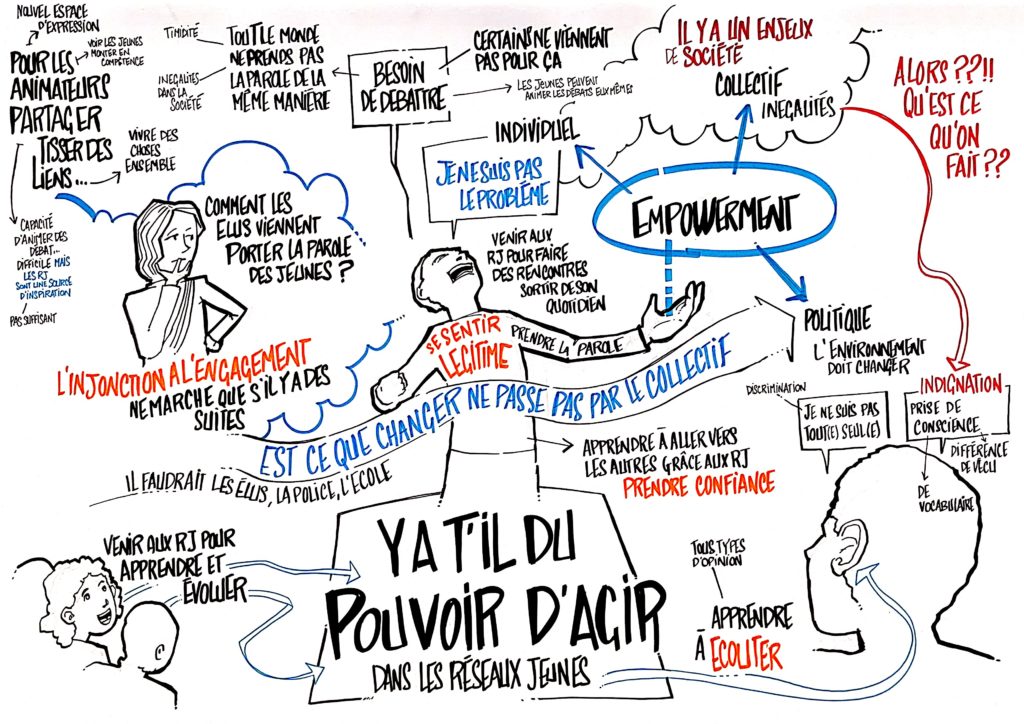 NOUVEL ESPACE
D'EXPRESSION
VOIR LES JEUNES
MONTER EN
COMPÉTENCE
POUR LES
ANIMATEURS
PARTAGER
TISSER DES
LIENS...
VIVRE DES
CHOSES
ENSEMBLE
CAPACITÉ
D'ANIMER DES
DÉBAT...
DIFFICILE MAIS
LES RJ
SONT UNE SOURCE
D'INSPIRATION
PAS SUFFISANT
TIMIDITÉ
INEGALITÉS
DANS LA
SOCIÉTÉ
TOUT LE MONDE
NE PRENDS PAS
LA PAROLE DE LA
MÊME MANIÈRE
BESOIN
DE DEBATTRE
CERTAINS NE VIENNENT
PAS POUR ÇA
LES JEUNES PEUVENT
ANIMER LES DÉBATS EUX MÊMES
IL Y A UN ENJEUX
DE SOCIÉTÉ
COLLECTIF
INEGALITÉS
ALORS ??!!
QU'EST CE
QU'ON
FAIT ??
INDIVIDUEL
JE NE SUIS PAS
LE PROBLÉME
EMPOWERMENT
COMMENT LES
ELUS VIENNENT
PORTER LA PAROLE
DES JEUNES ?
VENIR AUX
RJ POUR FAIRE
DES RENCONTRES
SORTIR DE SON
QUOTIDIEN
SE SENTIR
LEGITIME
PRENDRE LA PAROLE
POLITIQUE
L'ENVIRONNEMENT
DOIT CHANGER
L'INJONCTION A L'ENGAGEMENT
NE MARCHE QUE S'IL Y A DES
SUITES
EST CE QUE CHANGER NE PASSE PAS PAR LE COLLECTIF
IL FAUDRAIT LES ÉLUS, LA POLICE, L'ECOLE
DISCRIMINATION
JE NE SUIS PAS
TOUT(E) SEUL(E)
INDIGNATION
PRISE DE
CONSCIENCE
DIFFÉRENCE
DE VÉCU
DE
VOCABULAIRE
APPRENDRE À ALLER VERS
LES AUTRES GRÂCE AUX RJ
PRENDRE CONFIANCE
VENIR AUX RJ POUR
APPRENDRE ET
ÉVOLUER
Y A T'IL DU
POUVOIR D'AGIR
DANS LES RÉSEAUX JEUNES
TOUS TYPES
D'OPINION
APPRENDRE
À ECOUTER